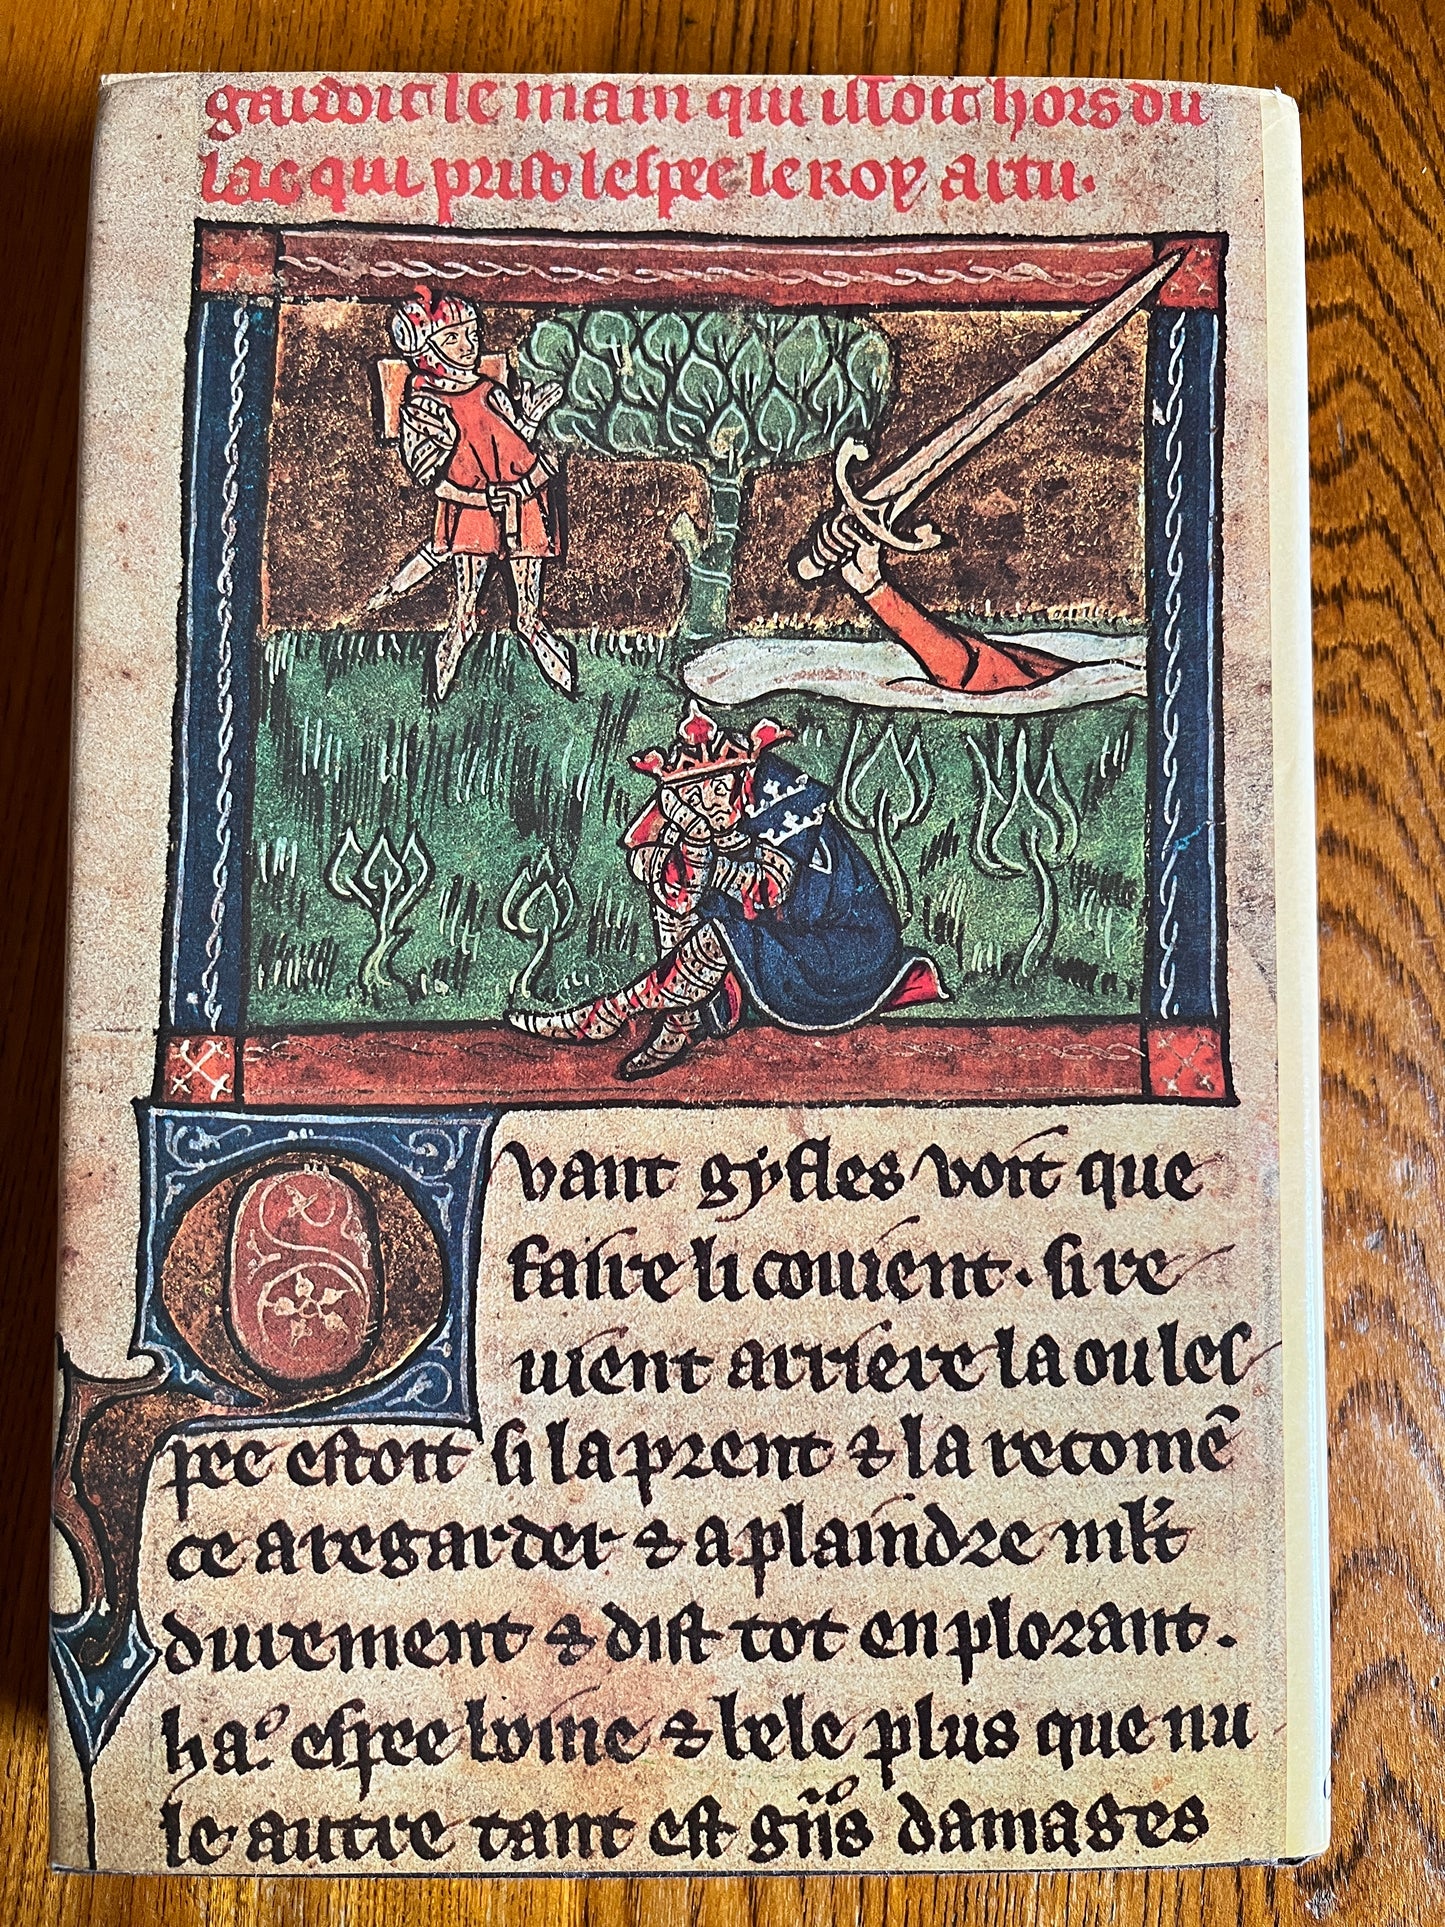 gardoit le main qui issoit hors du
lac qui prist lespee le roy artu.
Qvant gyfles voit que
faire li couient. si re
uient arriere la ou les
pee estoit si la prent & la recomē
ce a regarder & a plaindre mlt
durement & dist tot en plorant.
ha.º espee boine & bele plus que nu
le autre tant est gñs damages